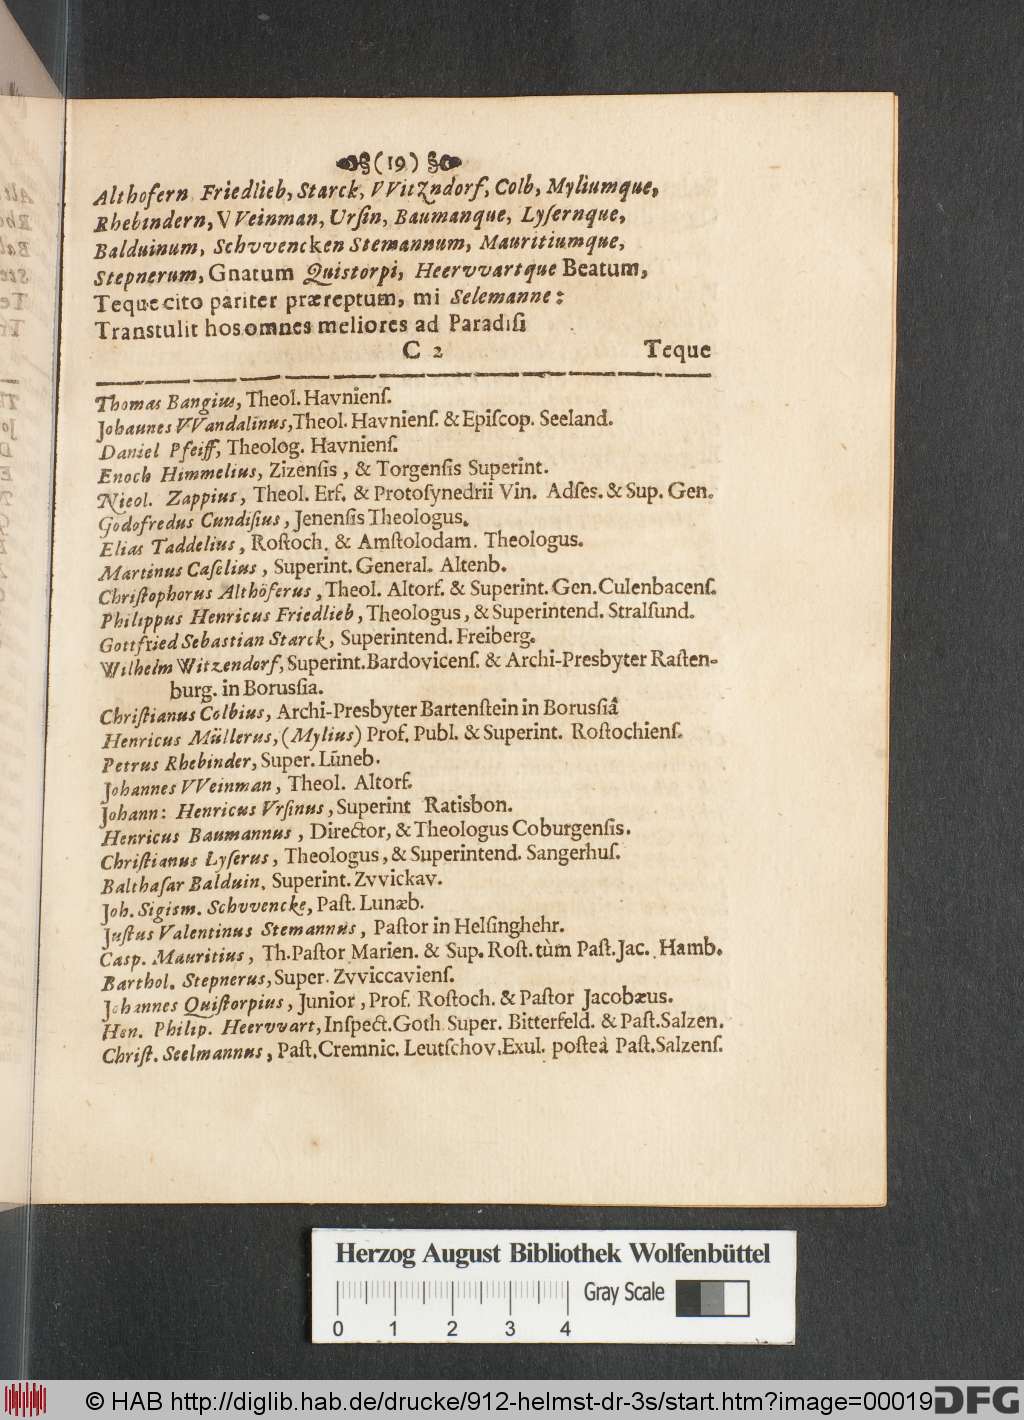 (19)
Althofern Friedlieb, Starck, VVitzndorf, Colb, Myliumque,
Rhebindern, VVeinman, Urſin, Baumanque, Lyſernque,
Balduinum, Schvvencken Stemannum, Mauritiumque,
Stepnerum, Gnatum Quistorpi, Heervvartque Beatum,
Teque cito pariter præreptum, mi Selemanne:
Transtulit hos omnes meliores ad Paradiſi
C 2 Teque
Thomas Bangius, Theol. Havnienſ.
Johaunes VVandalinus, Theol. Havnienſ. & Epiſcop. Seeland.
Daniel Pfeiff, Theolog. Havnienſ.
Enoch Himmelius, Zizenſis, & Torgenſis Superint.
Nicol. Zappius, Theol. Erf. & Protoſynedrii Vin. Adſes. & Sup. Gen.
Godofredus Cundiſius, Jenenſis Theologus.
Elias Taddelius, Roſtoch. & Amſtolodam. Theologus.
Martinus Caſelius, Superint. General. Altenb.
Chriſtophorus Althöferus, Theol. Altorf. & Superint. Gen. Culenbacenſ.
Philippus Henricus Friedlieb, Theologus, & Superintend. Stralſund.
Gottfried Sebastian Starck, Superintend. Freiberg.
Wilhelm Witzendorf, Superint. Bardovicenſ. & Archi-Presbyter Raſten-
burg. in Borussia.
Chriſtianus Colbius, Archi-Presbyter Bartenſtein in Borussiâ
Henricus Müllerus, (Mylius) Prof. Publ. & Superint. Roſtochienſ.
Petrus Rhebinder, Super. Lüneb.
Johannes VVeinman, Theol. Altorf.
Johann: Henricus Vrſinus, Superint Ratisbon.
Henricus Baumannus, Director, & Theologus Coburgenſis.
Chriſtianus Lyſerus, Theologus, & Superintend. Sangerhuſ.
Balthaſar Balduin, Superint. Zvvickav.
Joh. Sigism. Schvvencke, Paſt. Lunæb.
Juſtus Valentinus Stemannus, Paſtor in Helſinghehr.
Casp. Mauritius, Th. Paſtor Marien. & Sup. Roſt. tùm Paſt. Jac. Hamb.
Barthol. Stepnerus, Super. Zvviccavienſ.
Johannes Quiſtorpius, Junior, Prof. Roſtoch. & Paſtor Jacobæus.
Hen. Philip. Heervvart, Inſpect. Goth Super. Bitterfeld. & Paſt. Salzen.
Chriſt. Seelmannus, Paſt. Cremnic. Leutſchov. Exul. poſteà Paſt. Salzenſ.
Herzog August Bibliothek Wolfenbüttel
Gray Scale
0 1 2 3 4
© HAB http://diglib.hab.de/drucke/912-helmst-dr-3s/start.htm?image=00019
DFG